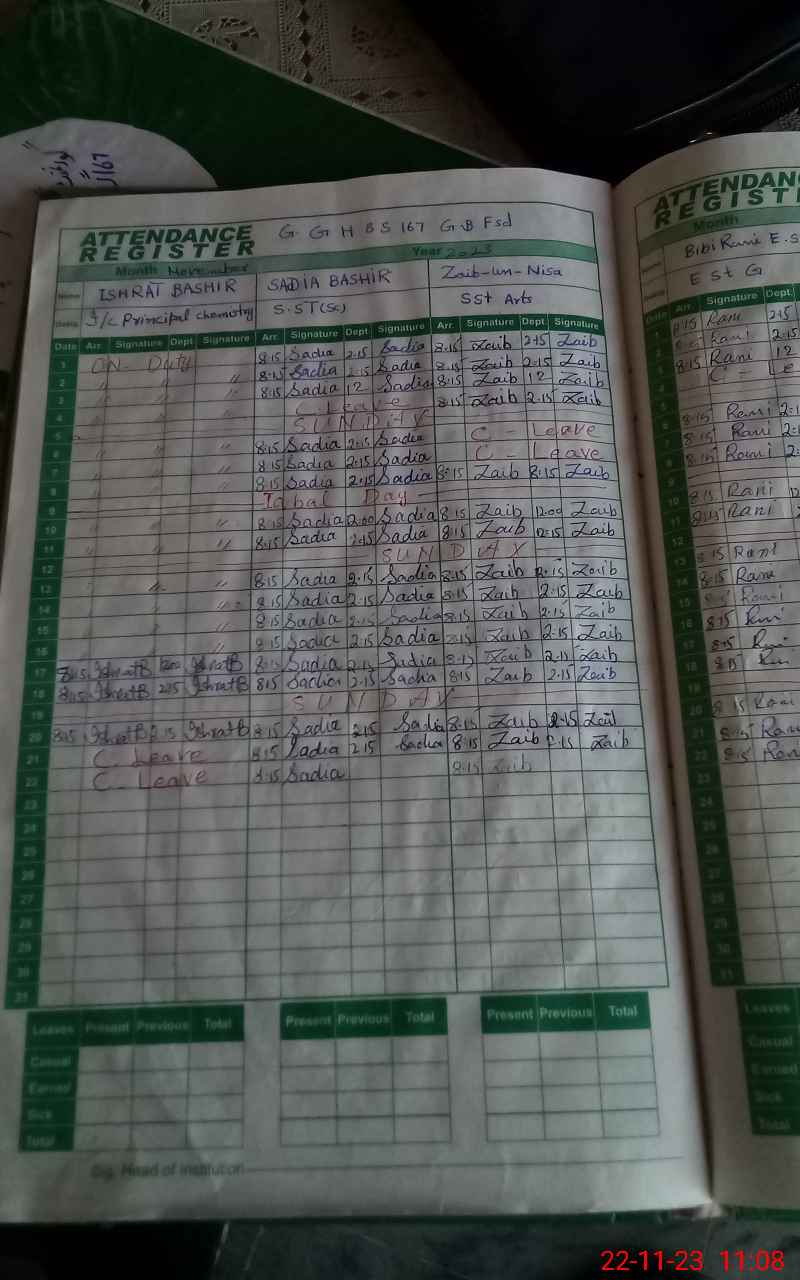 167
ATTENDANCE REGISTER G. G H B S 167 G.B Fsd
Month November Year 2023
Name ISHRAT BASHIR SADIA BASHIR Zaib-un-Nisa
I/C Principal chemistry S.ST(Sc) SSt Arts
Date Arr. Signature Dept Signature Arr. Signature Dept Signature Arr. Signature Dept. Signature
1 ON- Duty 8:15 Sadia 2.15 Sadia 8.15 Zaib 2.15 Zaib
2 " " " 8.15 Sadia 2.15 Sadia 8.15 Zaib 2.15 Zaib
3 " " " 8.15 Sadia 12 Sadia 8.15 Zaib 12 Zaib
4 " " C. Leave 8.15 Zaib 2.15 Zaib
5 SUNDAY
6 " " " 8.15 Sadia 2.15 Sadia C - Leave
7 " " " 8.15 Sadia 2.15 Sadia C - Leave
8 " " 8.15 Sadia 2.15 Sadia 8:15 Zaib 8:15 Zaib
9 Iqbal Day
10 " " " 8.15 Sadia 12.00 Sadia 8.15 Zaib 12.00 Zaib
11 " " " 8.15 Sadia Sadia 8.15 Zaib 12.15 Zaib
12 SUNDAY
13 " " " 8.15 Sadia 2.15 Sadia 8.15 Zaib 2.15 Zaib
14 " " " 8.15 Sadia 2.15 Sadia 8.15 Zaib 2.15 Zaib
15 8.15 Sadia 2.15 Sadia 8.15 Zaib 2.15 Zaib
16 8.15 Sadia 2.15 Sadia Zaib 2.15 Zaib
17 8:15 IshratB 1200 IshratB 8.15 Sadia Sadia Zaib 2.15 Zaib
18 8:15 IshratB 2:15 IshratB 8.15 Sadia 2.15 Sadia 8.15 Zaib 2.15 Zaib
19 SUNDAY
20 8:15 IshratB 2.15 IshratB 8.15 Sadia 2.15 Sadia 8.15 Zaib 2.15 Zaib
21 C. Leave 8.15 Sadia 2.15 Sadia 8.15 Zaib 2.15 Zaib
22 C. Leave 8.15 Sadia 8.15 Zaib
23
24
25
26
27
28
29
30
31
Leaves Present Previous Total Present Previous Total Present Previous Total
Casual
Earned
Sick
Total
Sig. Head of Institution
ATTENDAN
REGIST
Month
Bibi Rani E.S
E St G
Date Arr. Signature Dept.
1 8:15 Rani 2.15
2 Rani 2.15
3 8:15 Rani 12
4 C - Le
5
6 8:15 Rani
7 8:15 Rani
8 8:15 Rani
9
10 8:15 Rani
11 8:15 Rani
12
13 8:15 Rani
14 8:15 Rani
15 8:15 Rani
16 8:15
17 8:15
18 8:15
19
20 8:15 Rani
21 8:15 Ran
22 8:15 Ran
23
24
25
26
27
28
29
30
31
Leaves
Casual
Earned
Sick
Total
22-11-23 11:08